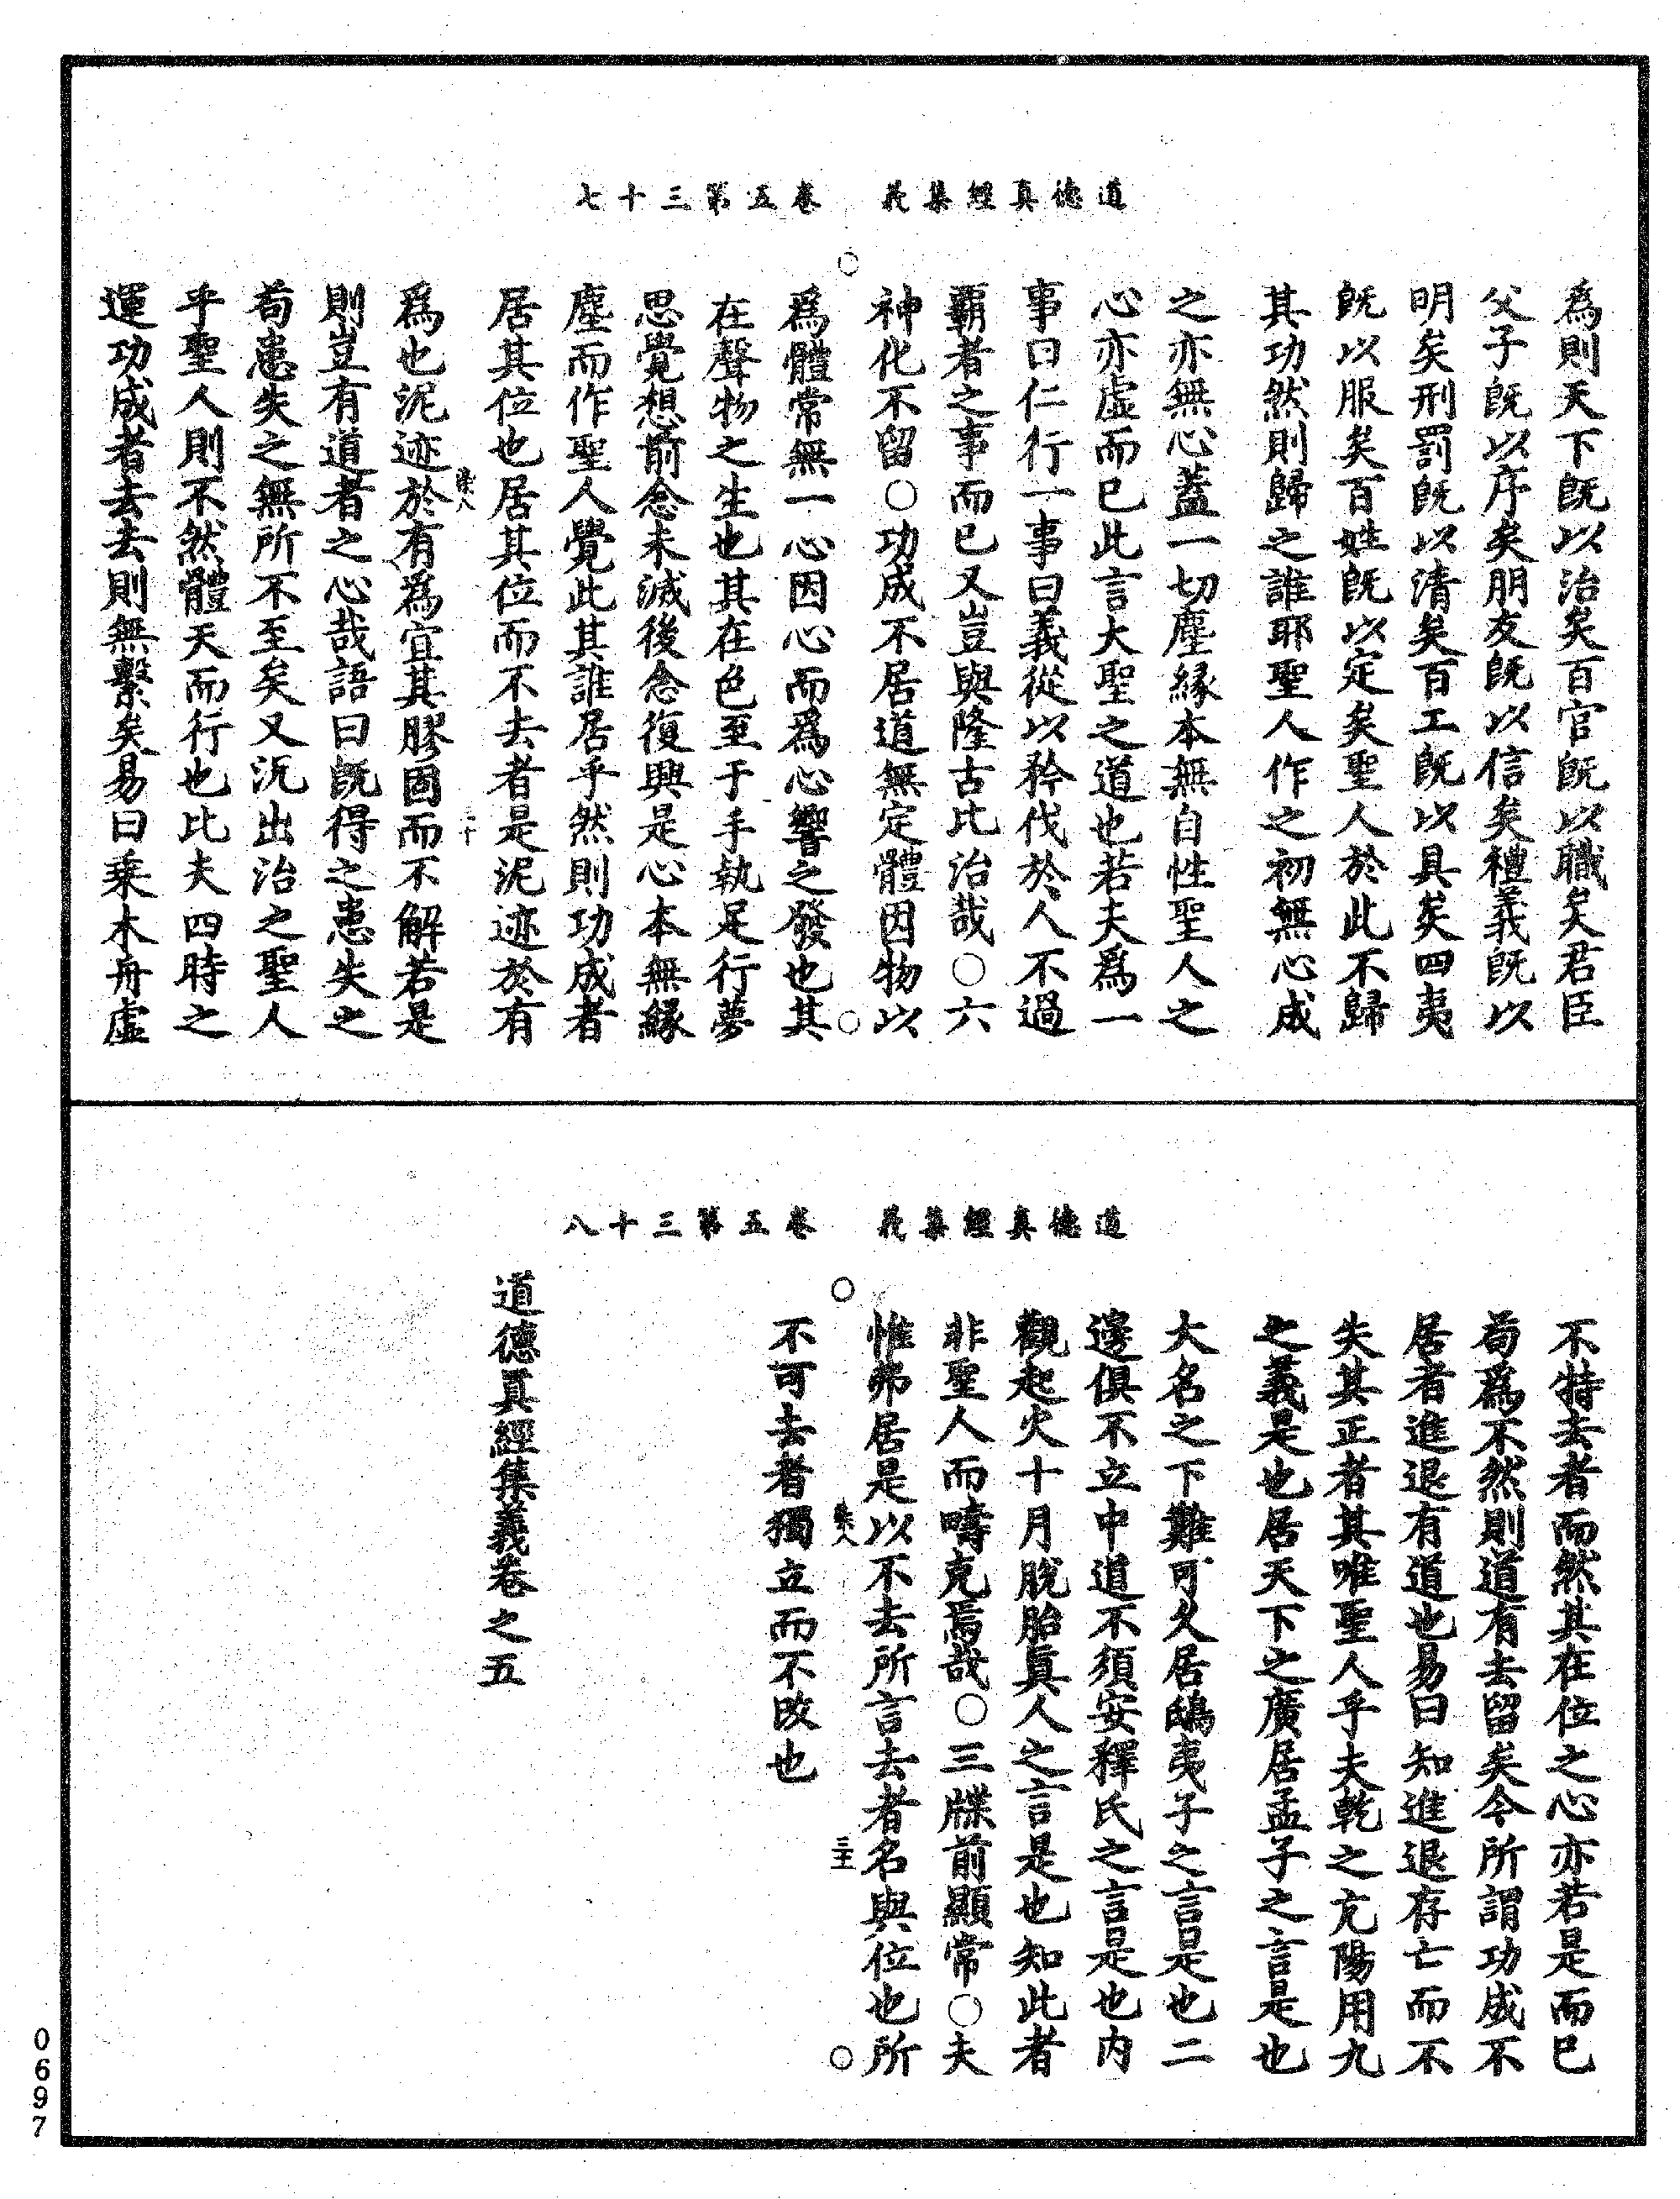 道德真經集義　卷五第三十七
為則天下旣以治矣百官旣以職矣君臣
父子旣以序矣朋友旣以信矣禮義旣以
明矣刑罰旣以清矣百工旣以具矣四夷
旣以服矣百姓旣以定矣聖人於此不歸
其功然則歸之誰耶聖人作之初無心成
之亦無心蓋一切塵緣本無自性聖人之
心亦虛而已此言大聖之道也若夫爲一
事曰仁行一事曰義從以矜伐於人不過
霸者之事而已又豈與隆古比治哉○六
神化不留○功成不居道無定體因物以
爲體常無一心因心而爲心響之發也其
在聲物之生也其在色至于手執足行夢
思覺想前念未滅後念復興是心本無緣
塵而作聖人覺此其誰居乎然則功成者
居其位也居其位而不去者是泥迹於有
爲也泥迹於有為宜其膠固而不解若是
則豈有道者之心哉語曰旣得之患失之
苟患失之無所不至矣又況出治之聖人
乎聖人則不然體天而行也比夫四時之
運功成者去去則無繫矣易曰乘木舟虛
道德真經集義　卷五第三十八
不特去者而然其在位之心亦若是而已
苟爲不然則道有去留矣今所謂功成不
居者進退有道也易曰知進退存亡而不
失其正者其唯聖人乎夫乾之亢陽用九
之義是也居天下之廣居孟子之言是也
大名之下難可久居鴟夷子之言是也二
邊俱不立中道不須安釋氏之言是也內
觀起火十月脫胎眞人之言是也知此者
非聖人而疇克焉哉○三牒前顯常○夫
惟弗居是以不去所言去者名與位也所
不可去者獨立而不改也
道德眞經集義卷之五
0697